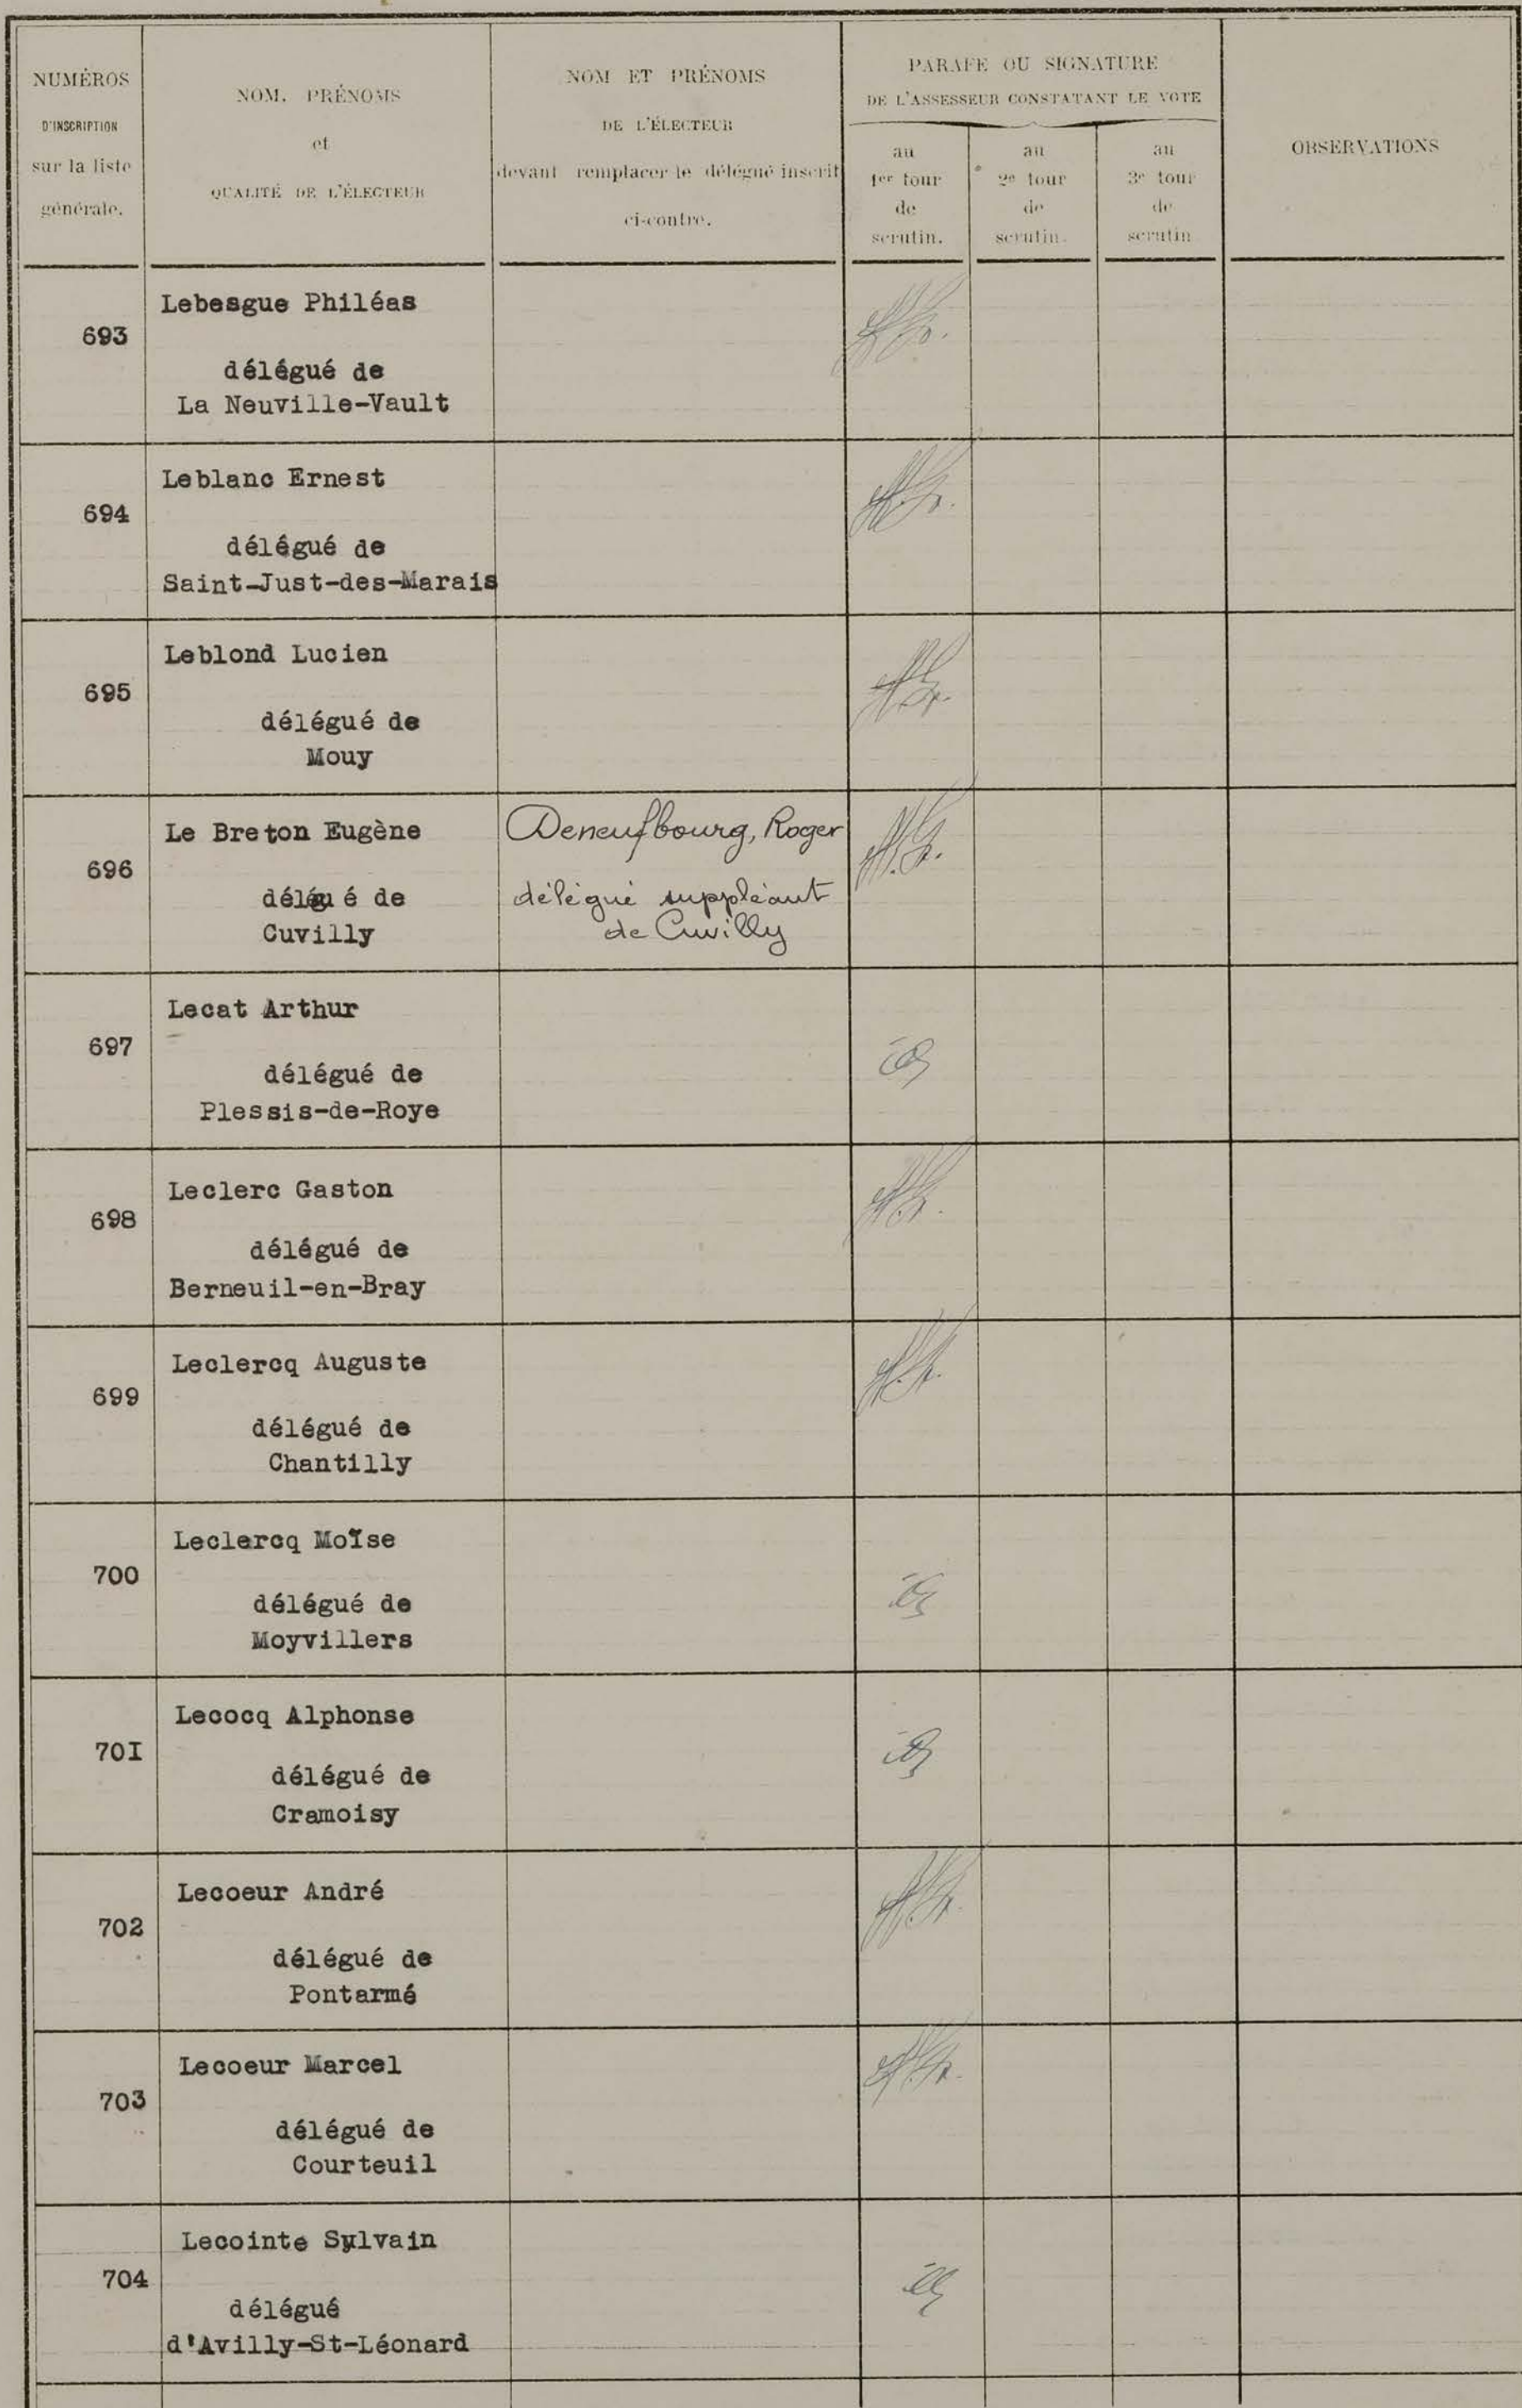 NUMÉROS
D'INSCRIPTION
sur la liste
générale.
NOM, PRÉNOMS
et
QUALITÉ DE L'ÉLECTEUR
NOM ET PRÉNOMS
DE L'ÉLECTEUR
devant remplacer le délégué inscrit
ci-contre.
PARAFE OU SIGNATURE
DE L'ASSESSEUR CONSTATANT LE VOTE
au
1er tour
de
scrutin.
au
2e tour
de
scrutin.
au
3e tour
de
scrutin
OBSERVATIONS
693
Lebesgue Philéas
délégué de
La Neuville-Vault
694
Leblanc Ernest
délégué de
Saint-Just-des-Marais
695
Leblond Lucien
délégué de
Mouy
696
Le Breton Eugène
délégué de
Cuvilly
Deneufbourg, Roger
délégué suppléant
de Cuvilly
697
Lecat Arthur
délégué de
Plessis-de-Roye
698
Leclerc Gaston
délégué de
Berneuil-en-Bray
699
Leclercq Auguste
délégué de
Chantilly
700
Leclercq Moïse
délégué de
Moyvillers
70I
Lecocq Alphonse
délégué de
Cramoisy
702
Lecoeur André
délégué de
Pontarmé
703
Lecoeur Marcel
délégué de
Courteuil
704
Lecointe Sylvain
délégué
d'Avilly-St-Léonard